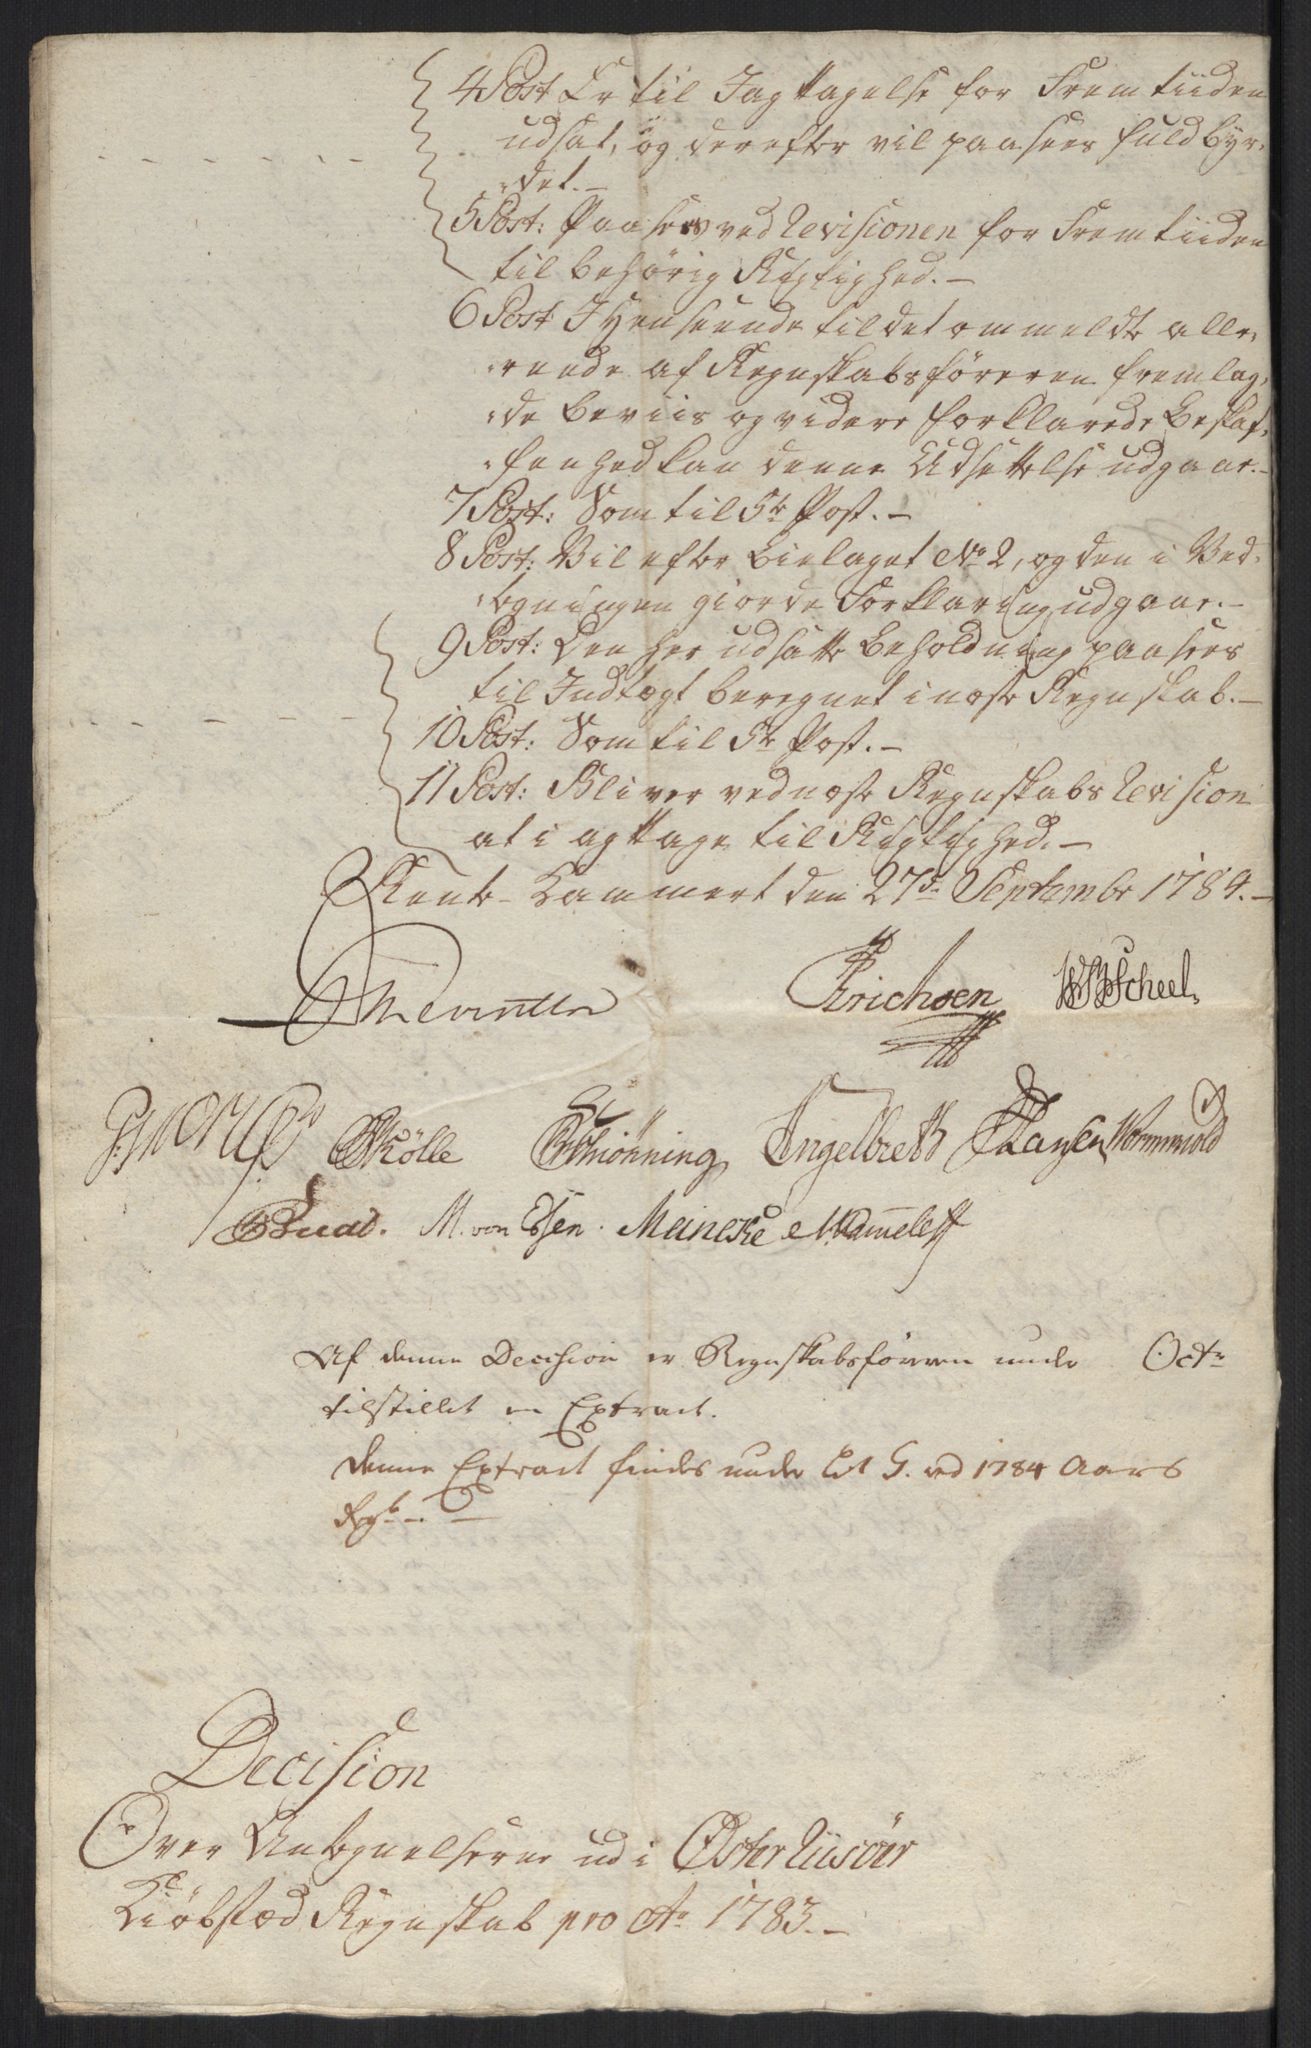 4 Post Er til Iagttagelse for Fremtiiden
udsat, og derefter vil paasees fuldbyr„
„det.–
5 Post: Paasees ved Revisionen for Fremtiiden
til behørig Rigtighed.–
6 Post I Henseende til det ommeldte alle„
„reede af Regnskabsføreren fremlag„
„de beviis og videre forklarede Beskaf„
„fenhed kan denne Udsættelse udgaae.–
7 Post: Som til 5te Post.–
8 Post: Vil efter Bielaget No 2, og den i Ved„
„tegningen giorde Forklaring udgaae.–
9 Post: Den her udsatte beholdning paasees
til Indtægt beregnet i næste Regnskab.–
10 Post: Som til 5te Post.–
11 Post: Bliver ved næste Regnskabs Revision
at iagttage til Rigtighed.–
Rente-Cammeret den 27de Septembr 1784.–
Reventlow
Erichsen WSBScheel.
Kølle Schiønning Engelbreth Hansen Wormwold
M. von Essen. Meincke Mammelett
Af denne Decision er Regnskabsføreren under Octr
tilstillet en Extract.
Denne Extract findes under Lit G. ved 1784 Aars
Rgb.–
Decision
Over Antegnelserne udi Øster Riisöer
Kiøbstæd Regnskab pro Ao 1783.–